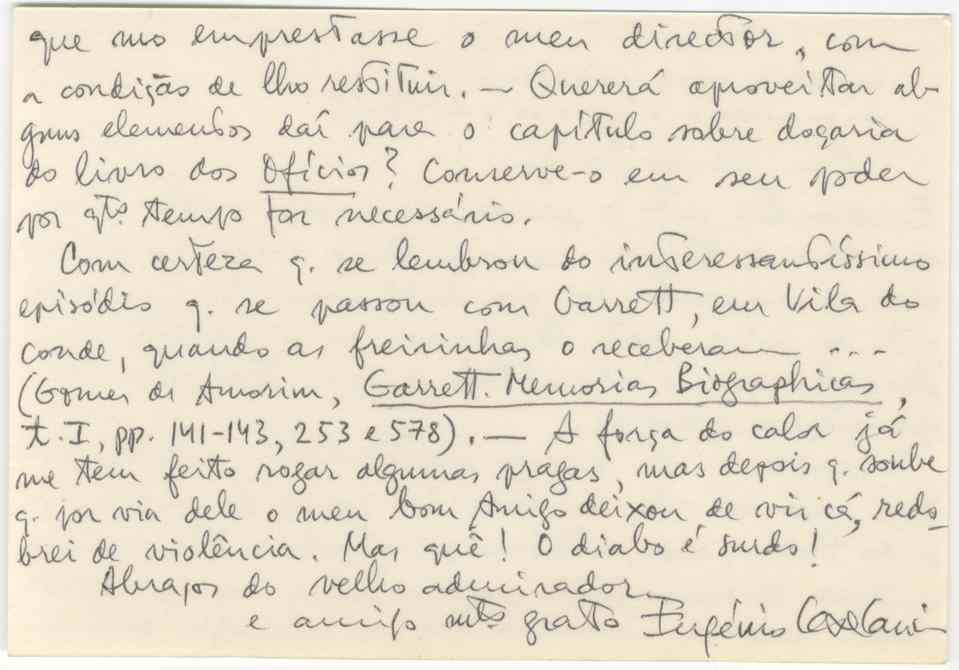 que mo emprestasse o meu director, com
a condição de lho restituir. — Quererá aproveitar al-
guns elementos daí para o capítulo sobre doçaria
do livro dos Ofícios? Conserve-o em seu poder
por qto. tempo for necessário.
Com certeza q. se lembrou do interessantíssimo
episódio q. se passou com Garrett, em Vila do
Conde, quando as freirinhas o receberam ...
(Gomes de Amorim, Garrett. Memorias Biographicas,
t. I, pp. 141-143, 253 e 578). — A força do calor já
me tem feito rogar algumas pragas, mas depois q. soube
q. por via dele o meu bom Amigo deixou de vir cá, redo-
brei de violência. Mas quê! O diabo é surdo!
Abraços do velho admirador
e amigo mto grato Eugénio